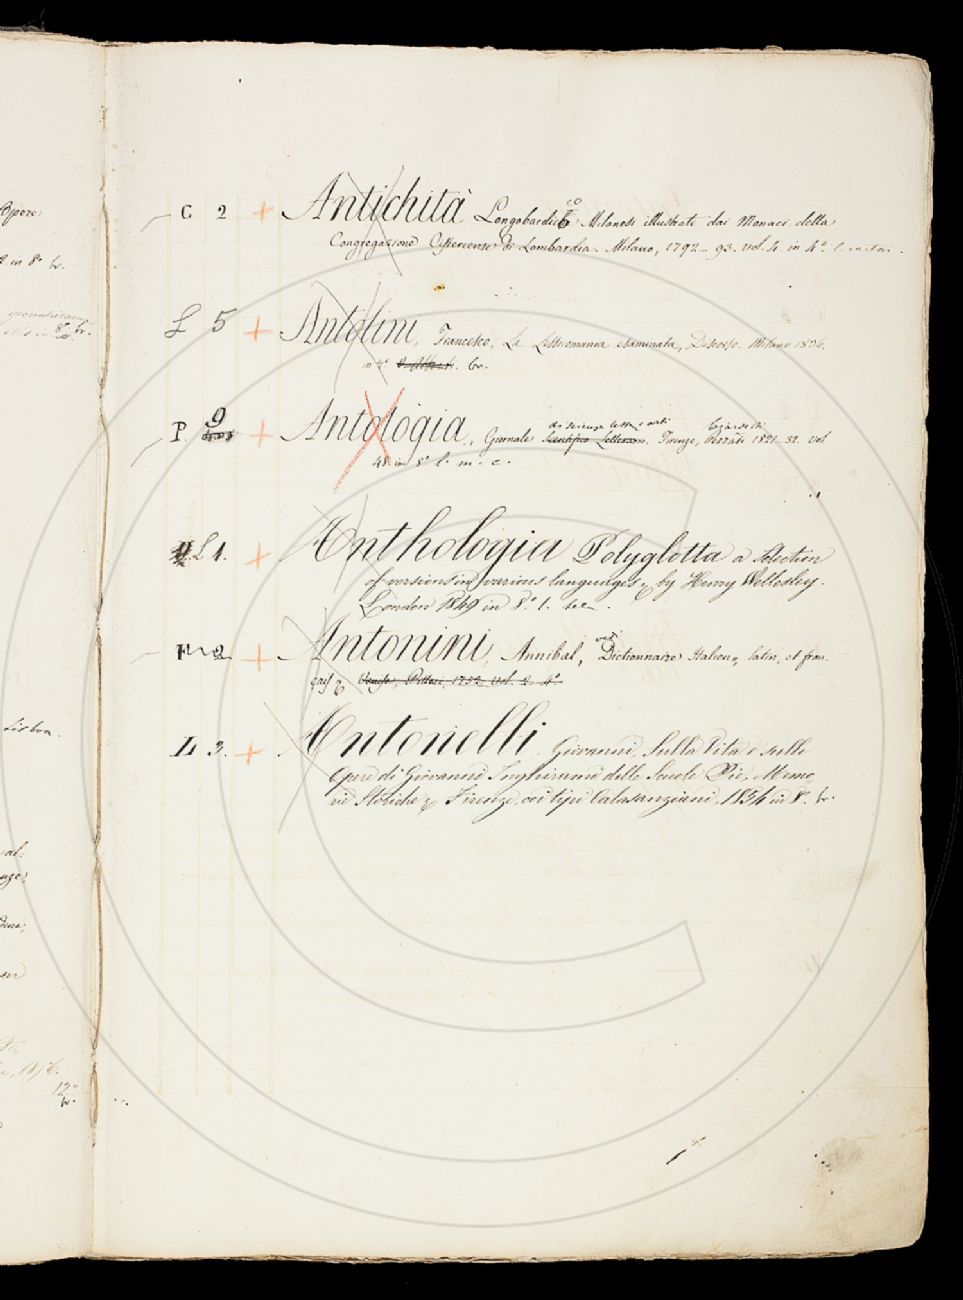 Opere
in 8° br.
C 2 + Antichità Longobardico Milanesi illustrate dai Monaci della
Congregazione Cisterciense di Lombardia. Milano, 1792-93. vol. 4 in 4°
L 5 + Antolini, Francesco, La Lettromania esaminata, Discorso. Milano 1836.
in 4° br.
P. 9 + Antologia, Giornale di scienze lett. e arti
Scientifico Letterario. Firenze, 1821-32. vol
48 in 8° l. m. c.
L 1. + Anthologia Polyglotta a Selection
of versions in various languages, by Henry Wellesley.
London 1849 in 8° l.
F 2 + Antonini, Annibal, Dictionnaire Italien, latin, et fran-
çais Venise, Pitteri, 1752. vol. 2. 4°
L 3. + Antonelli Giovanni, Sulla Vita e sulle
Opere di Giovanni Inghirami delle Scuole Pie, Memo
rie Storiche Firenze, coi tipi Calasanziani, 1854 in 8° br.
Lisbona.
12°
br.